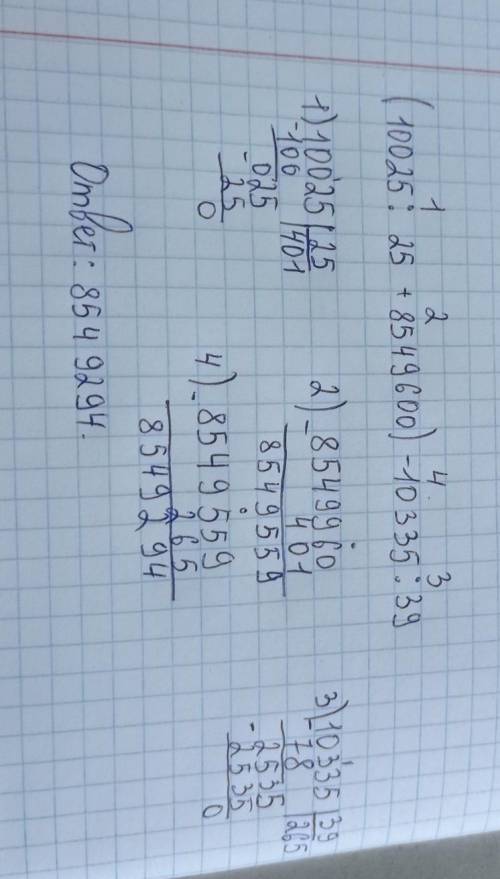 1 2 4 3
(10025 : 25 + 8549600) - 10335 : 39
1) 10025 | 25
- 100 | 401
025
- 25
0
2) - 8549960
401
8549559
3) 10335 | 39
- 78 | 265
2535
- 2535
0
4) - 8549559
265
8549294
Ответ: 8549294.